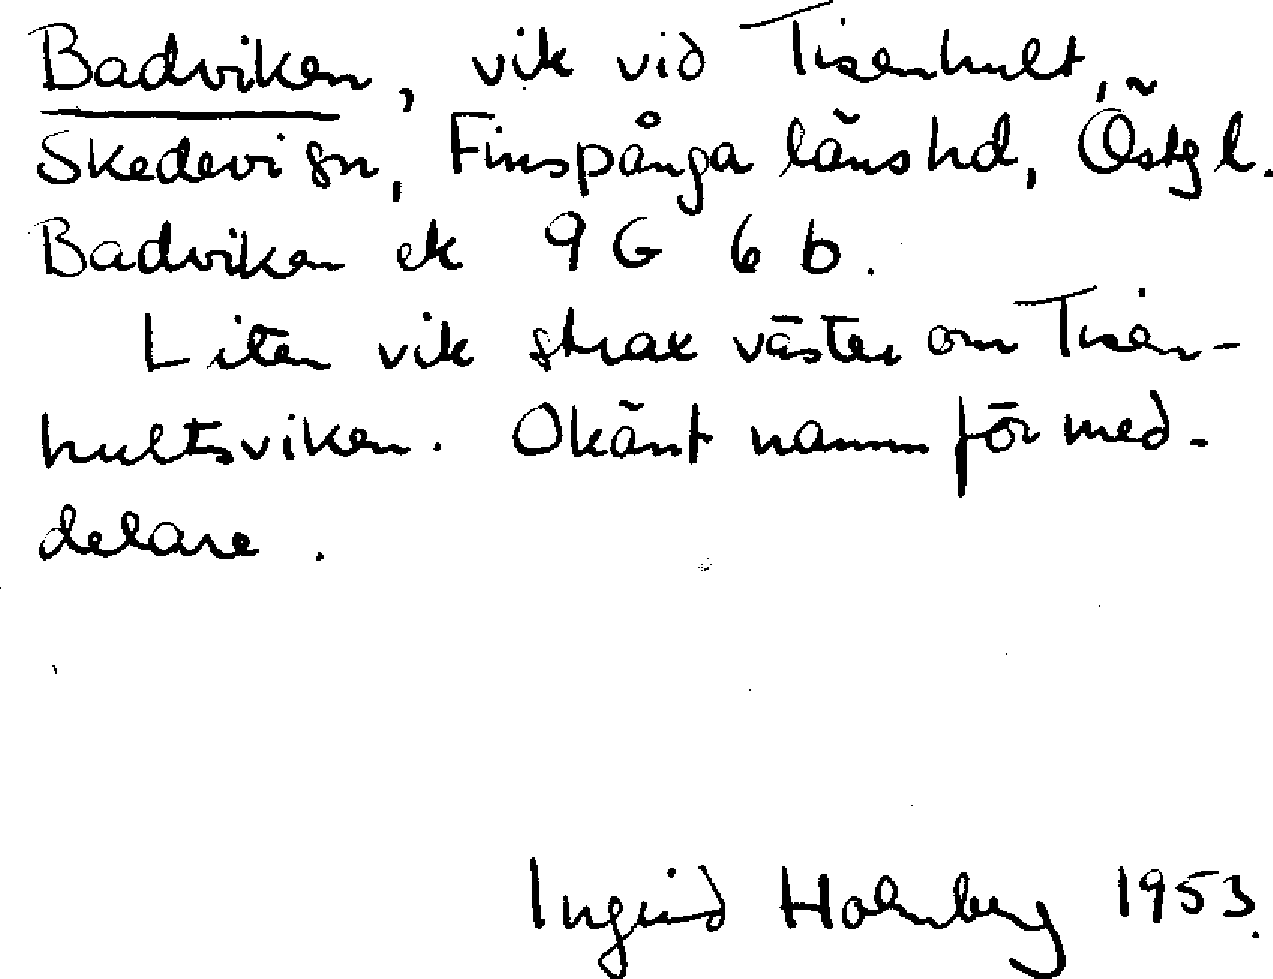 Badviken, vik vid Tisenhult,
Skedevi sn, Finspånga länshd, Östgl.
Badviken ek 9G 6b.
Liten vik strax väster om Tisen-
hultsviken. Okänt namn för med-
delare.
Ingrid Holmberg 1953.